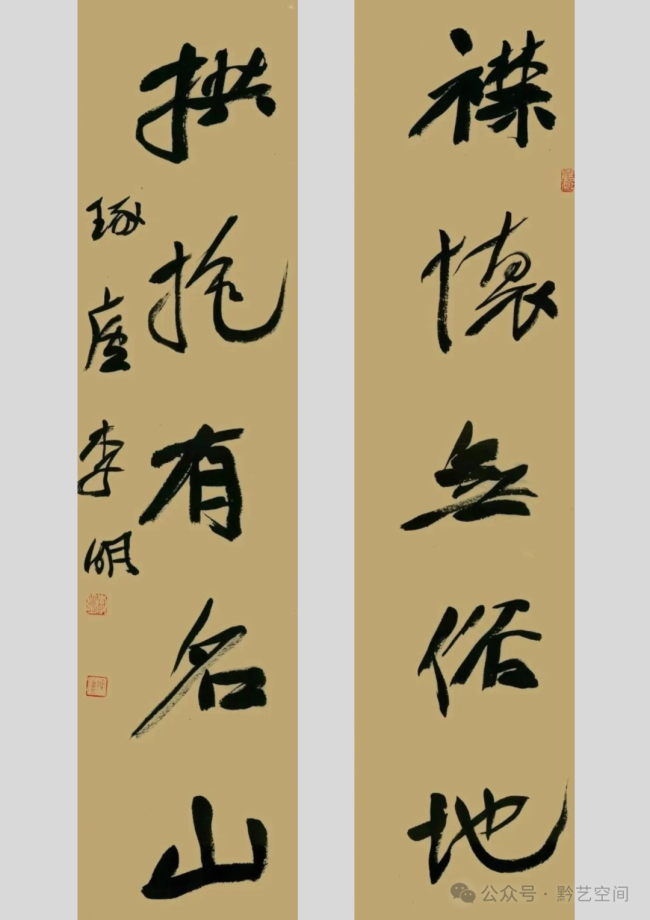 襟懷無俗地
拱抱有名山
琢廬李明
公众号·黔艺空间